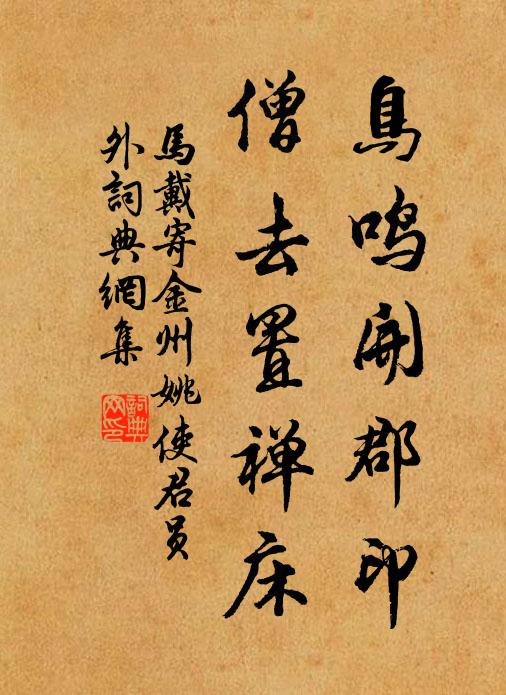 鳥鳴開郡印
僧去置禅床
馬戴寄金州姚使君員
外詞典網集
詞典
网印